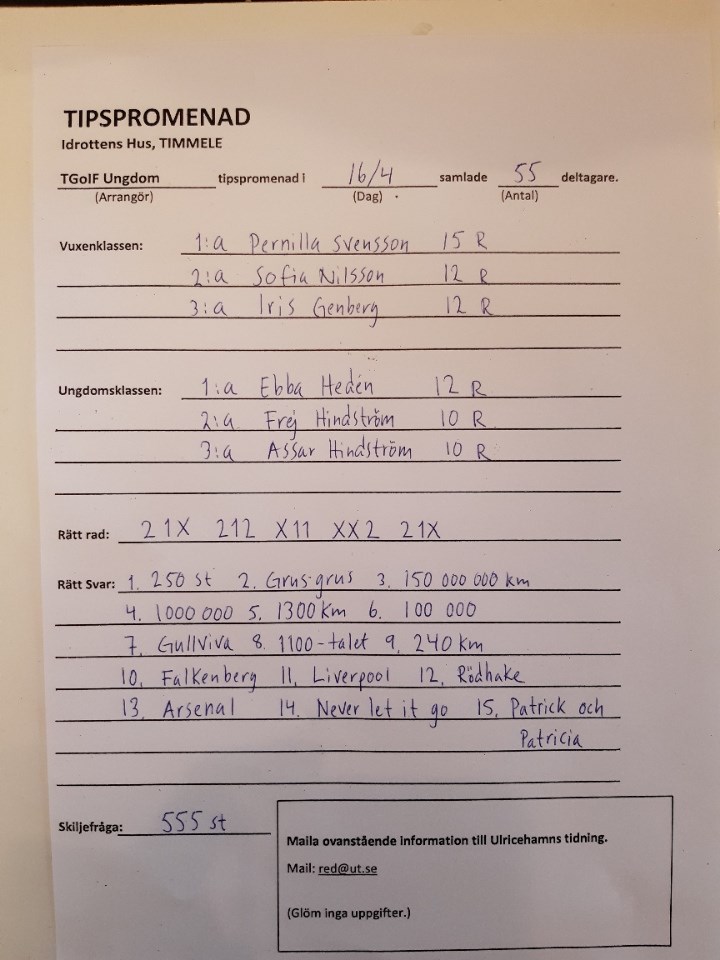 TIPSPROMENAD
Idrottens Hus, TIMMELE
TGoIF Ungdom tipspromenad i 16/4 samlade 55 deltagare.
(Arrangör) (Dag) (Antal)
Vuxenklassen: 1:a Pernilla Svensson 15 R
2:a Sofia Nilsson 12 R
3:a Iris Genberg 12 R
Ungdomsklassen: 1:a Ebba Hedén 12 R
2:a Frej Hindström 10 R
3:a Assar Hindström 10 R
Rätt rad: 21X 212 X11 XX2 21X
Rätt Svar: 1. 250 st 2. Grus-grus 3. 150 000 000 km
4. 1000 000 5. 1300 km 6. 100 000
7. Gullviva 8. 1100-talet 9. 240 km
10. Falkenberg 11. Liverpool 12. Rödhake
13. Arsenal 14. Never let it go 15. Patrick och
Patricia
Skiljefråga: 555 st
Maila ovanstående information till Ulricehamns tidning.
Mail: red@ut.se
(Glöm inga uppgifter.)